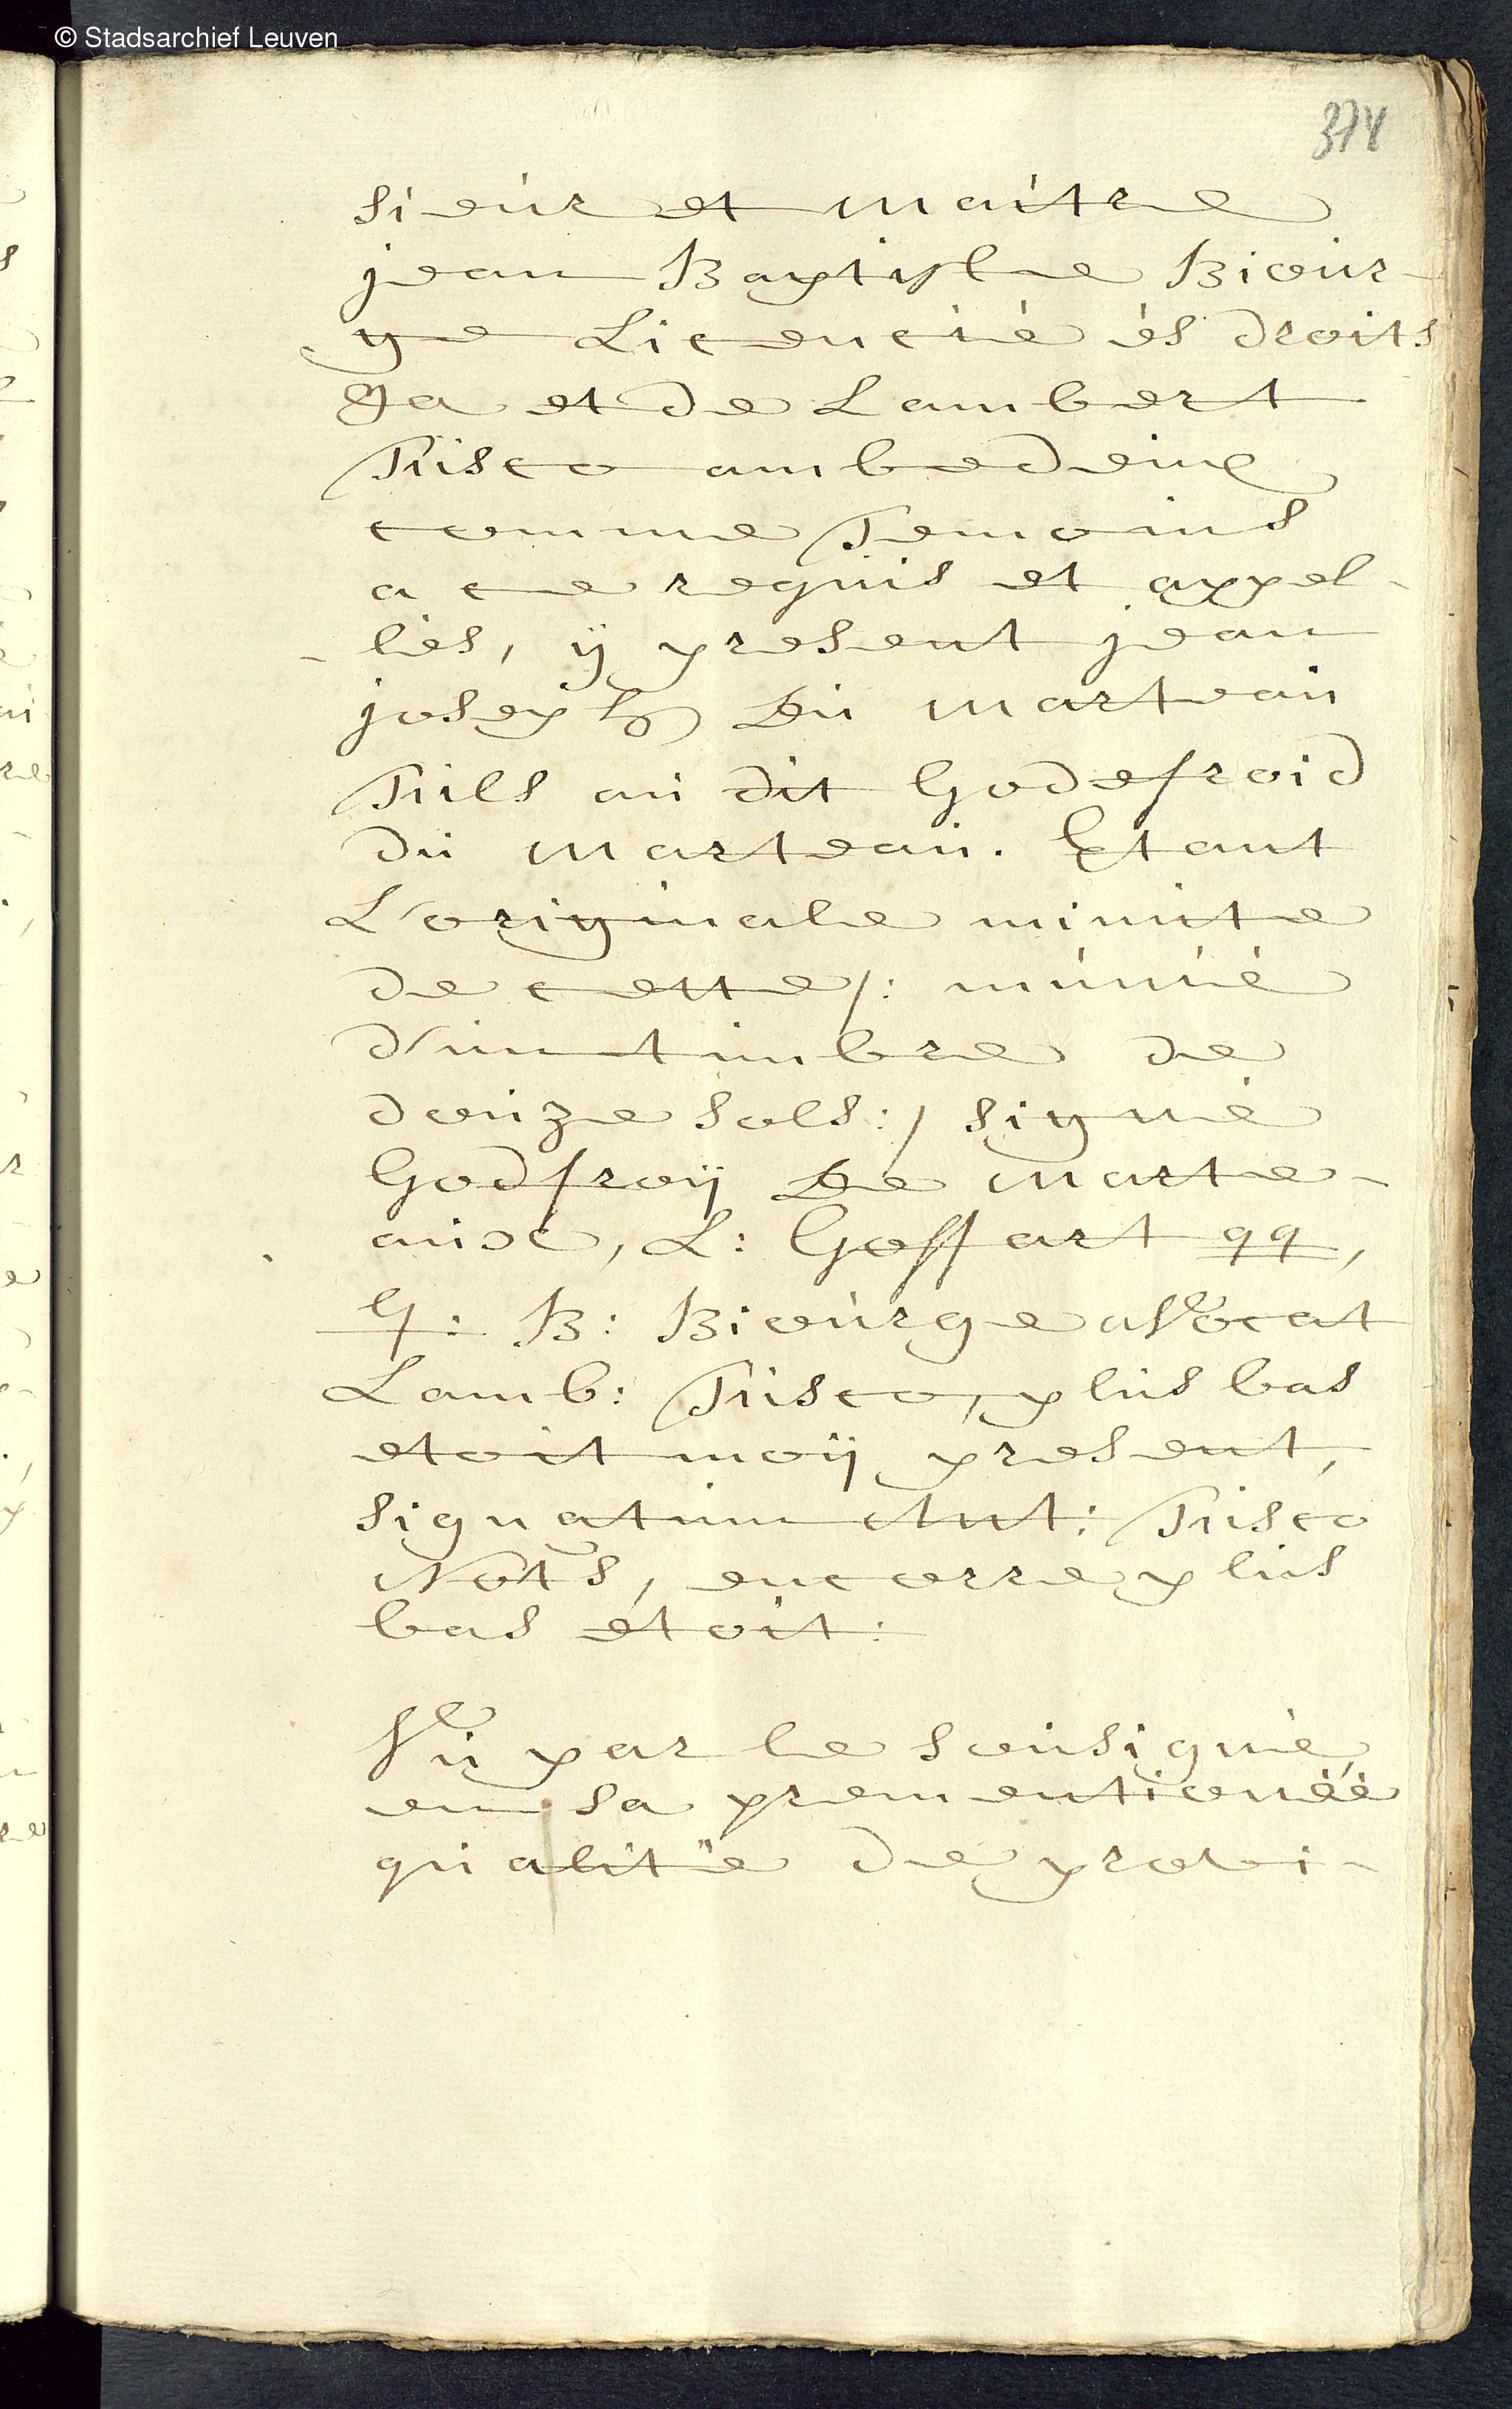 © Stadsarchief Leuven
374
sieur et maitre
jean Baptiste Biour-
ge Licencié és droits
&a et de Lambert
Tüsco ambedeux
comme Temoins
a ce requis et appel-
-lés, ÿ present jean
joseph Du marteau
Fiils au dit Godefroid
du marteau. Etant
L'originale minute
de cette /: munié
d'un timbre de
douze sols :/ signé
Godfroÿ De marte-
aux, L: Goffart qq,
G: B: Biourge aVocat
Lamb: Tüsco, plus bas
etoit moÿ present,
signatum Ant: Tüsco
Nots, encorre plus
bas étoit:
Vu par le sousigné
en sa prementionéé
qualité de provi-